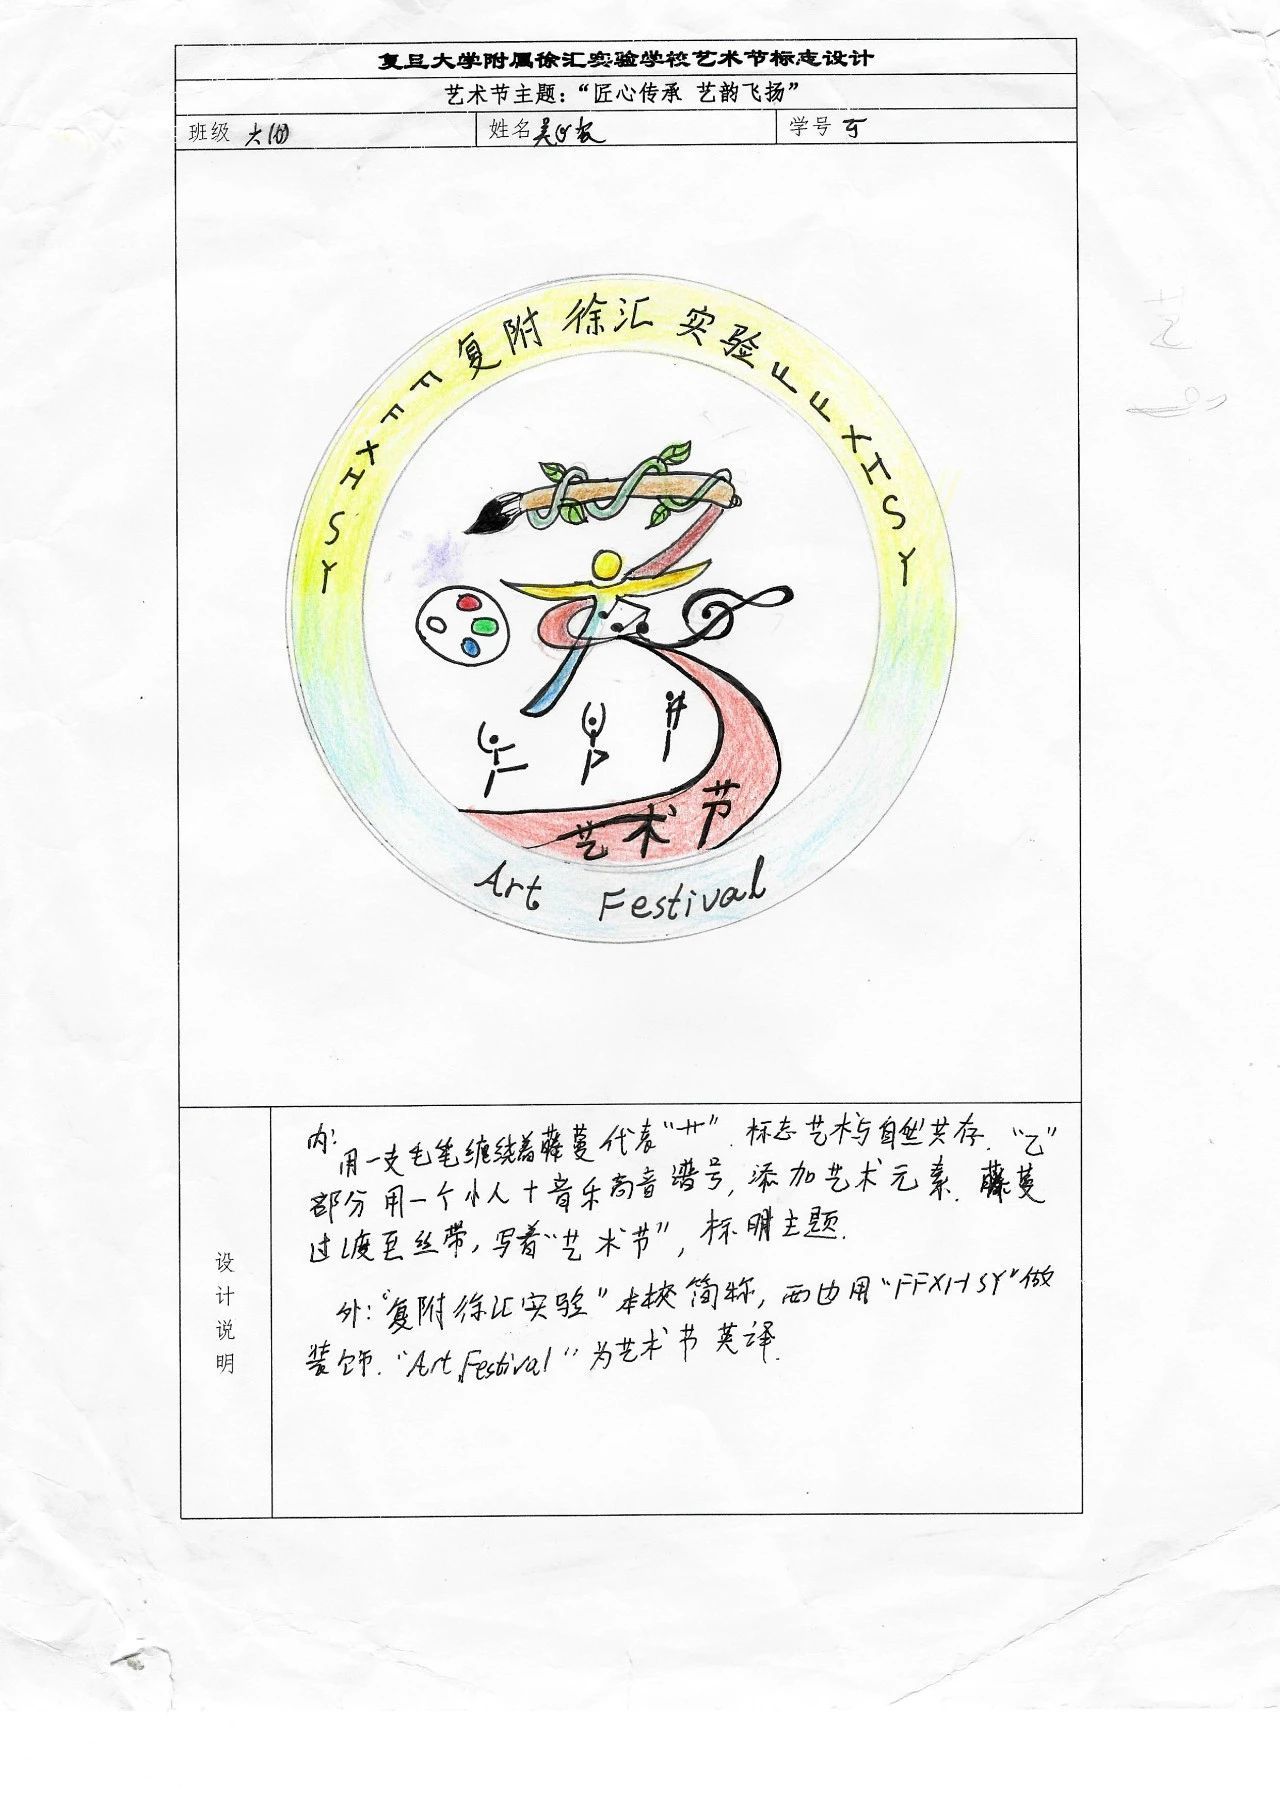 复旦大学附属徐汇实验学校艺术节标志设计
艺术节主题：“匠心传承 艺韵飞扬”
班级 六(四) 姓名 吴 学号
复附 徐汇 实验
FFXHSY
FFXHSY
艺术节
Art Festival
设计说明
内：用一支毛笔缠绕着藤蔓代表“艹”．标志艺术与自然共存．“乙”
部分用一个小人＋音乐高音谱号，添加艺术元素．藤蔓
过度至丝带，写着“艺术节”，标明主题．
外：“复附徐汇实验”本校简称，两边用“FFXHSY”做
装饰．“Art Festival”为艺术节英译．
艺